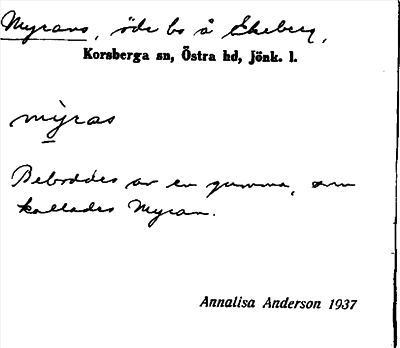 Myrans, öde bs å Ekeberg,
Korsberga sn, Östra hd, Jönk. l.
mỳras
Beboddes av en gumma, som
kallades Myran.
Annalisa Anderson 1937